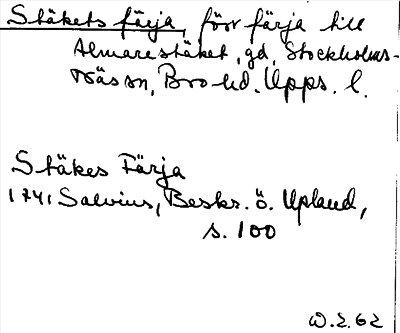 Stäkets färja, förr färja till
Almarestäket, gd, Stockholms-
Näs sn, Bro hd. Upps. l.
Stäkes Färja
1741 Salvius, Beskr. ö. Upland,
s. 100
W.Z. 62